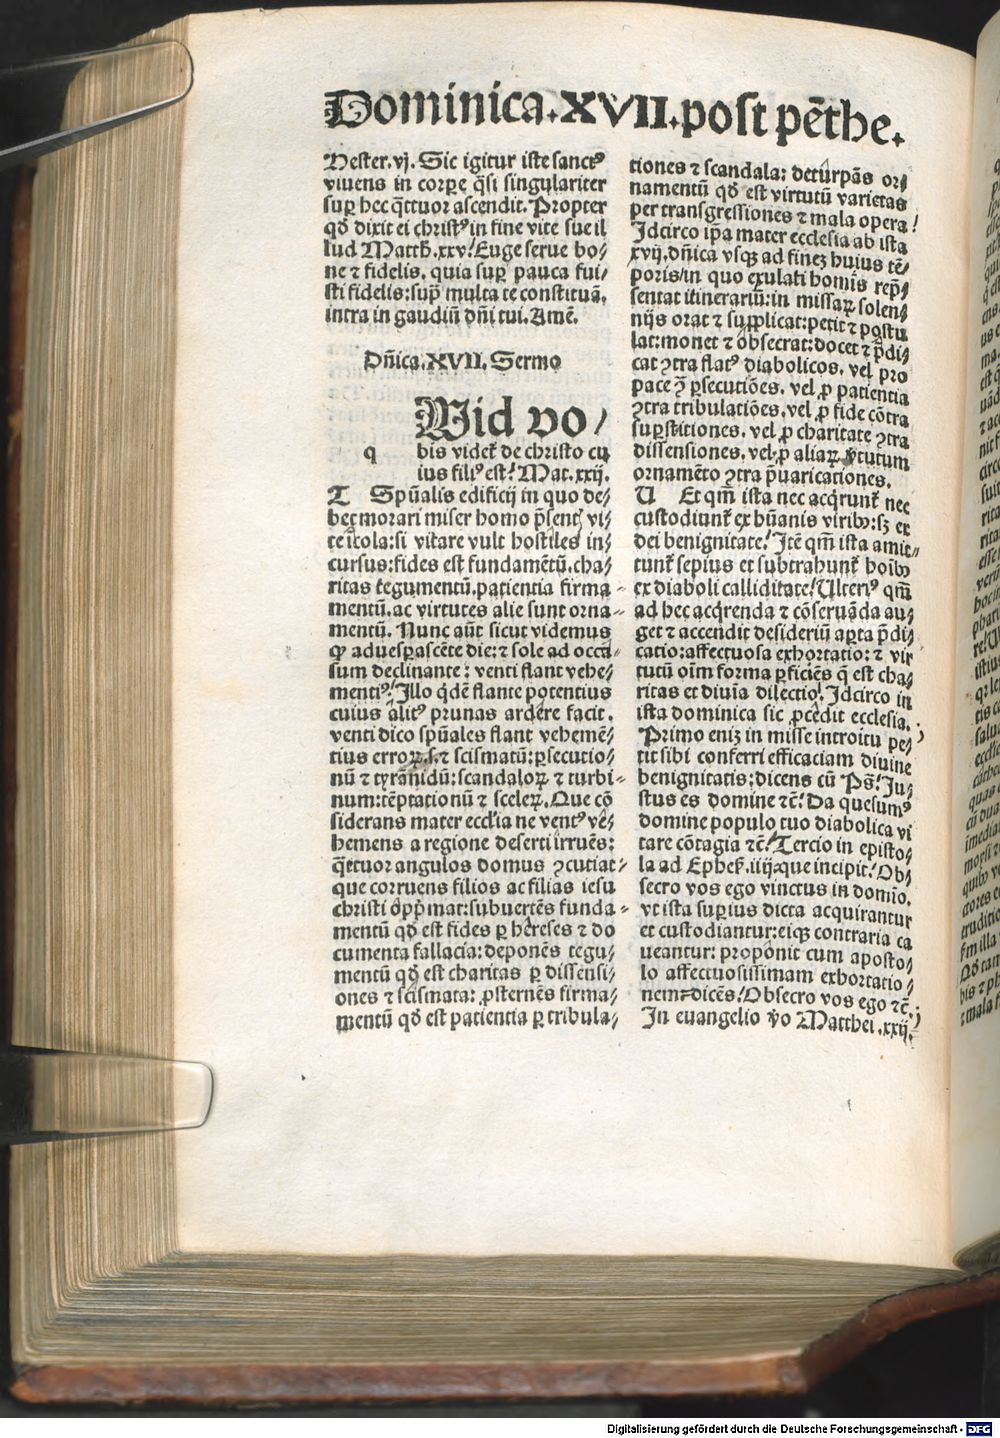 Dominica.XVII.post pēthe.
Hester.vj. Sic igitur iste sanctꝰ
viuens in corꝑe q̄si singulariter
suꝑ hec q̄ttuor ascendit. Propter
qđ dixit ei christꝰ in fine vite sue il
lud Matth. xxv. Euge serue bo⸗
ne ⁊ fidelis, quia suꝑ pauca fui⸗
sti fidelis: sup̄ multa te constituā,
intra in gaudiū dn̄i tui. Amē.
Dn̄ica. XVII. Sermo
Wid vo/
q bis videt᷑ de christo cu
ius filiꝰ est? Mat. xxij.
T Spūalis edificij in quo de⸗
bet morari miser homo p̄sentꝭ vi⸗
te īcola: si vitare vult hostiles in⸗
cursus: fides est fundamētū, cha⸗
ritas tegumentū. patientia firma⸗
mentū. ac virtutes alie sunt orna⸗
mentū. Nunc aūt sicut videmus
ꝙ aduesꝑascēte die: ⁊ sole ad occa⸗
sum declinante: venti flant vehe⸗
mentiꝰ. Illo q̇dē flante potentius
cuius alitꝰ prunas ardere facit.
venti dico spūales flant vehemē⸗
tius erroꝝ.s.⁊ scismatū: ꝑsecutio⸗
nū ⁊ tyranidū: scandaloꝝ ⁊ turbi⸗
num: tēptationū ⁊ sceleꝝ. Que cō
siderans mater eccl̄ia ne ventꝰ ve⸗
hemens a regione deserti irruēs:
q̄ttuor angulos domus ꝯcutiat⸗
que corruens filios ac filias iesu
christi op̄p̄mat: subuertēs funda⸗
mentū qđ est fides ꝑ hereses ⁊ do
cumenta fallacia: deponēs tegu⸗
mentū qđ est charitas ꝑ dissensi⸗
ones ⁊ scismata: ꝓsternēs firma⸗
mentū qđ est patientia ꝑ tribula⸗
tiones ⁊ scandala: deturpās or⸗
namentū qđ est virtutū varietas
per transgressiones ⁊ mala opera!
Idcirco ip̄a mater ecclesia ab ista
xvij. dn̄ica vsqꝫ ad finez huius tē⸗
poris/in quo exulati homīs rep̄⸗
sentat itinerariū: in missaꝝ solen⸗
nijs orat ⁊ supplicat: petit ⁊ postu
lat: monet ⁊ obsecrat: docet ⁊ p̄di⸗
cat ꝯtra flatꝰ diabolicos, vel pro
pace ꝯ̄ ꝑsecutiōes, vel ꝓ patientia
ꝯtra tribulatiōes, vel ꝓ fide cōtra
suꝑstitiones, vel ꝓ charitate ꝯtra
dissensiones, vel ꝓ aliaꝝ v̄tutum
ornamēto ꝯtra p̄uaricationes.
U Et qm̄ ista nec acq̇runt᷑ nec
custodiunt᷑ ex hūanis viribꝰ: sꝫ ex
dei benignitate! Itē qm̄ ista amit⸗
tunt᷑ sepius et subtrahunt᷑ hoībꝰ
ex diaboli calliditate! Ulteriꝰ qm̄
ad hec acq̇renda ⁊ cōseruāda au⸗
get ⁊ accendit desideriū aꝑta p̄di⸗
catio: affectuosa exhortatio: ⁊ vir
tutū oīm forma ꝑficiēs q̄ est cha⸗
ritas et diuīa dilectio! Idcirco in
ista dominica sic ꝓcedit ecclesia.
Primo eniꝫ in misse introitu pe⸗
tit sibi conferri efficaciam diuine
benignitatis: dicens cū Ps̄! Ju⸗
stus es domine ⁊c̄! Da quesumꝰ
domine populo tuo diabolica vi
tare cōtagia ⁊c̄! Tercio in episto⸗
la ad Epheß. iiij. que incipit! Ob⸗
secro vos ego vinctus in domīo.
vt ista suꝑius dicta acquirantur
et custodiantur: eisqꝫ contraria ca
ueantur: proponit cum aposto⸗
lo affectuosissimam exhortatio⸗
nem dicēs! Obsecro vos ego ⁊c̄.
In euangelio v̄o Matthei. xxij.
Digitalisierung gefördert durch die Deutsche Forschungsgemeinschaft - DFG